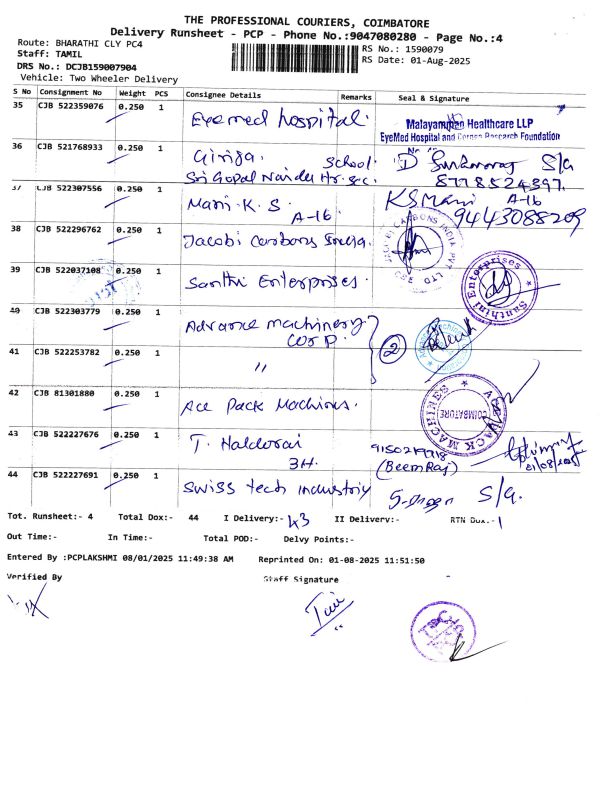 THE PROFESSIONAL COURIERS, COIMBATORE
Delivery Runsheet - PCP - Phone No.:9047080280 - Page No.:4
Route: BHARATHI CLY PC4
RS No.: 1590079
Staff: TAMIL
RS Date: 01-Aug-2025
DRS No.: DCJB159007904
Vehicle: Two Wheeler Delivery
S No Consignment No Weight PCS Consignee Details Remarks Seal & Signature
35 CJB 522359076 0.250 1 Eyemed hospital.
Healthcare LLP
EyeMed Hospital and Research Foundation
36 CJB 521768933 0.250 1 Girija. School.
Sri Gopal Naidu Hr. Sec. S/g
8778524397.
37 CJB 522307556 0.250 1 Mani. K. S. KSMani A-16
A-16. 9443088209
38 CJB 522296762 0.250 1 Jacobi Carbons India.
JACOBI CARBONS INDIA PVT. LTD
39 CJB 522037108 0.250 1 Santhi Enterprises.
Santhini Enterprises
40 CJB 522303779 0.250 1 Advance machinery
Corp. 2
41 CJB 522253782 0.250 1 "
42 CJB 81301880 0.250 1 Ace Pack Machines.
ACE PACK MACHINES
COIMBATORE
43 CJB 522227676 0.250 1 T. Haldorai
3H. (BeemRaj)
44 CJB 522227691 0.250 1 Swiss tech industriy S/g.
Tot. Runsheet:- 4 Total Dox:- 44 I Delivery:- 43 II Delivery:- RTN Dox.:- 1
Out Time:- In Time:- Total POD:- Delvy Points:-
Entered By :PCPLAKSHMI 08/01/2025 11:49:38 AM Reprinted On: 01-08-2025 11:51:50
Verified By Staff Signature